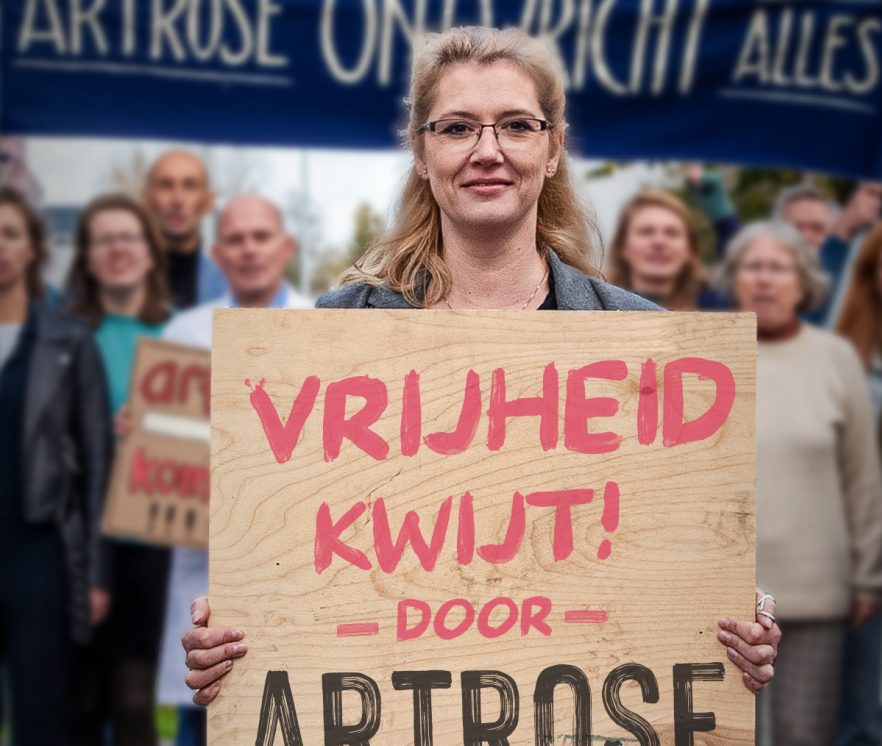 ARTROSE ONTWRICHT ALLES
VRIJHEID
KWIJT!
- DOOR -
ARTROSE